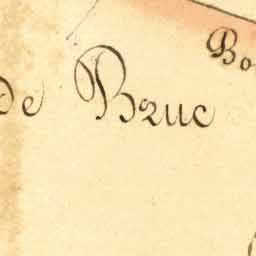 de Bruc
Bo